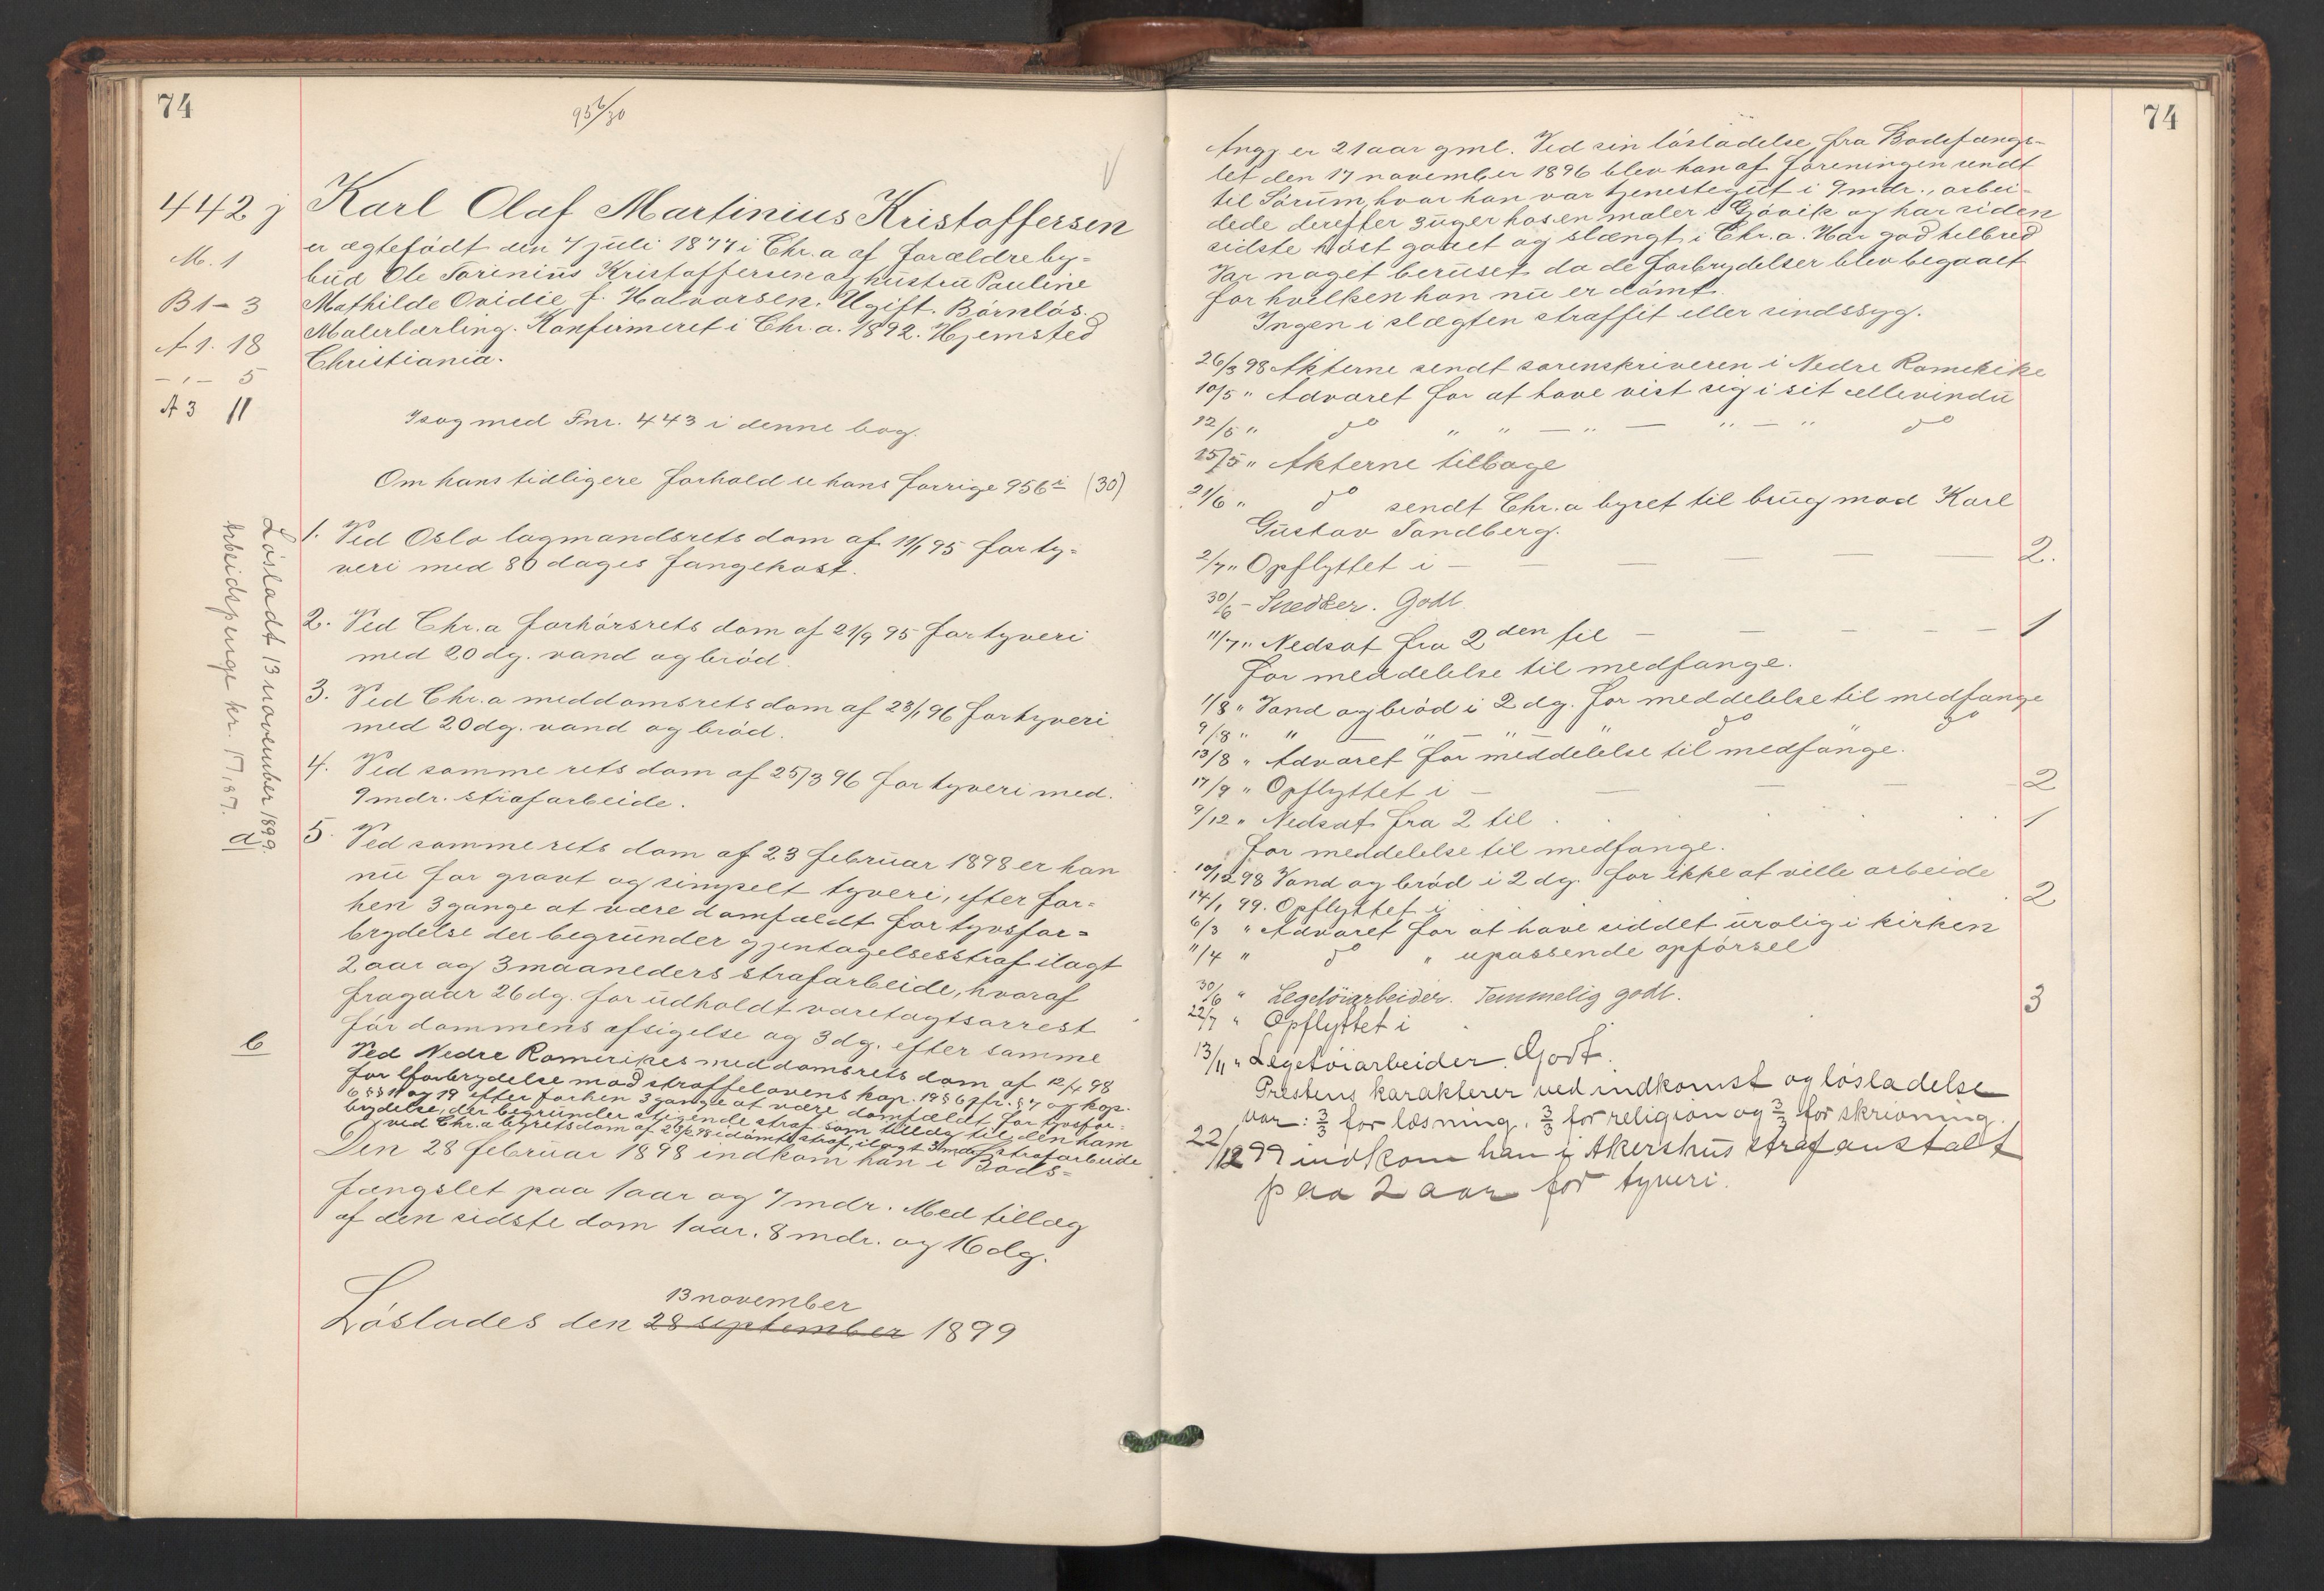 74
956/30
442 j
Karl Olaf Martinius Kristoffersen
M. 1
B 1 - 3
A 1. 18
- " - 5
A 3 11
er ægtefödt den 7 juli 1877 i Chr.a af forældre by=
bud Ole Torinius Kristoffersen og hustru Pauline
Mathilde Ovidie f. Halvorsen. Ugift. Börnlös.
Malerlærling. Konfirmeret i Chr.a. 1892. Hjemsted
Christiania.
I sag med Fnr. 443 i denne bog.
Om hans tidligere forhold se hans forrige 956 (30)
1. Ved Oslo lagmandsrets dom af 11/1 95 for ty=
veri med 80 dages fangekost.
2. Ved Chr.a forhörsrets dom af 21/9 95 for tyveri
med 20 dg. vand og bröd.
3. Ved Chr.a meddomsrets dom af 23/1 96 for tyveri
med 20 dg. vand og bröd.
4. Ved samme rets dom af 25/3 96 for tyveri med
9 mdr. strafarbeide.
5. Ved samme rets dom af 23 februar 1898 er han
nu for grovt og simpelt tyveri, efter for=
hen 3 gange at være domfældt for tyvsfor=
brydelse der begrunder gjentagelsesstraf ilagt
2 aar og 3 maaneders strafarbeide, hvoraf
fragaar 26 dg. for udholdt varetægtsarrest
för dommens afsigelse og 3 dg. efter samme
6
Ved Nedre Romerikes meddomsrets dom af 12/4 98
for forbrydelse mod straffelovens kap. 19 § 6 jfr. § 7 og kap.
6 §§ 11 og 19 efter forhen 3 gange at være domfældt for tyvsfor-
brydelse, der begrunder stigende straf som tillæg til den ham
ved Chr.a byretsdom af 23/2 98 idömte straf, ilagt 3 mdrs strafarbeide
Den 28 februar 1898 indkom han i Bods=
fængslet paa 1 aar og 7 mdr. Med tillæg
af den sidste dom 1 aar. 8 mdr. og 16 dg.
13 november
Löslades den 28 september 1899
Lösladt 13 november 1899.
Arbeidspenge kr. 17,67. d
74
Angj. er 21 aar gml. Ved sin lösladelse fra Bodsfængs-
let den 17 november 1896 blev han af foreningen sendt
til Sörum, hvor han var tjenestegut i 9 mdr., arbei-
dede derefter 3 uger hos en maler i Gjövik og har siden
sidste höst gaaet og slængt i Chr.a. Har god helbred
Var noget beruset da de forbrydelser blev begaaet
for hvilken han nu er dömt.
Ingen i slægten straffet eller sindssyg.
26/3 98 Akterne sendt sorenskriveren i Nedre Romerike
10/5 " Advaret for at have vist sig i sit cellevindu
12/5 " do " " — " — " — " do
25/5 " Akterne tilbage
21/6 " do sendt Chr.a byret til brug mod Karl
Gustav Sandberg.
2/7 " Opflyttet i — — — — — 2.
30/6 - Snedker. Godt
11/7 " Nedsat fra 2den til — — — — 1
for meddelelse til medfange.
1/8 " Vand og bröd i 2 dg. for meddelelse til medfange
9/8 " " — " — " do " do
13/8 " Advaret for meddelelse til medfange.
17/9 " Opflyttet i — — — — 2
9/12 " Nedsat fra 2 til . . . . . 1
for meddelelse til medfange.
10/12 98 Vand og bröd i 2 dg. for ikke at ville arbeide
14/1 99. Opflyttet i 2
6/3 " Advaret for at have siddet urolig i kirken
11/4 " do " upassende opförsel
30/6 " Legetöiarbeider. Temmelig godt.
22/7 " Opflyttet i 3
13/11 " Legetöiarbeider. Godt.
Prestens karakterer ved indkomst og lösladelse
var: 3/3 for læsning. 3/3 for religion og 3/3 for skrivning.
22/12 99 indkom han i Akershus strafanstalt
paa 2 aar for tyveri.